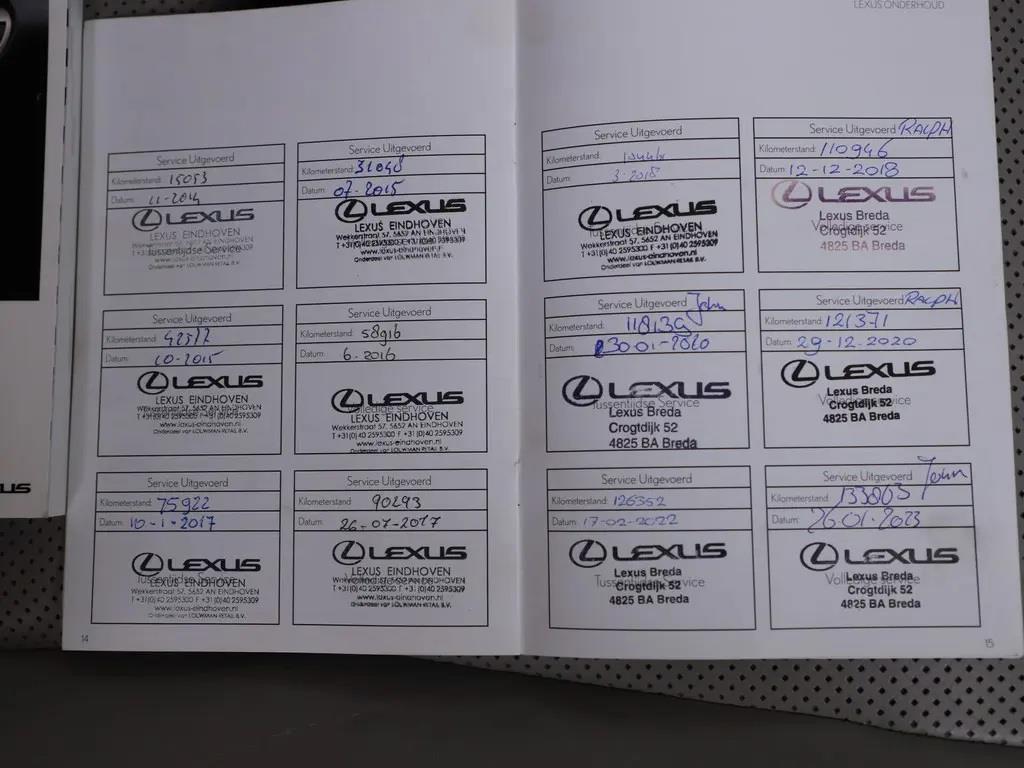 LEXUS ONDERHOUD
Service Uitgevoerd
Kilometerstand: 15053
Datum: 11-2014
LEXUS
LEXUS EINDHOVEN
Wekkerstraat 57, 5652 AN EINDHOVEN
T +31(0)40 2595300 F +31(0)40 2595309
Tussentijdse Service
www.lexus-eindhoven.nl
Onderdeel van LOUWMAN RETAIL B.V.
Service Uitgevoerd
Kilometerstand:
Datum: 07-2015
LEXUS
LEXUS EINDHOVEN
Wekkerstraat 57, 5652 AN EINDHOVEN
T +31(0)40 2595300 F +31(0)40 2595309
www.lexus-eindhoven.nl
Onderdeel van LOUWMAN RETAIL B.V.
Service Uitgevoerd
Kilometerstand:
Datum: 10-2015
LEXUS
LEXUS EINDHOVEN
Wekkerstraat 57, 5652 AN EINDHOVEN
T +31(0)40 2595300 F +31(0)40 2595309
www.lexus-eindhoven.nl
Onderdeel van LOUWMAN RETAIL B.V.
Service Uitgevoerd
Kilometerstand: 58916
Datum: 6-2016
LEXUS
Volledige service
LEXUS EINDHOVEN
Wekkerstraat 57, 5652 AN EINDHOVEN
T +31(0)40 2595300 F +31(0)40 2595309
www.lexus-eindhoven.nl
Onderdeel van LOUWMAN RETAIL B.V.
Service Uitgevoerd
Kilometerstand: 75922
Datum: 10-1-2017
LEXUS
Tussentijdse Service
LEXUS EINDHOVEN
Wekkerstraat 57, 5652 AN EINDHOVEN
T +31(0)40 2595300 F +31(0)40 2595309
www.lexus-eindhoven.nl
Onderdeel van LOUWMAN RETAIL B.V.
Service Uitgevoerd
Kilometerstand: 90293
Datum: 26-07-2017
LEXUS
LEXUS EINDHOVEN
Wekkerstraat 57, 5652 AN EINDHOVEN
T +31(0)40 2595300 F +31(0)40 2595309
www.lexus-eindhoven.nl
Onderdeel van LOUWMAN RETAIL B.V.
14
Service Uitgevoerd
Kilometerstand:
Datum: 3-2018
LEXUS
LEXUS EINDHOVEN
Wekkerstraat 57, 5652 AN EINDHOVEN
T +31(0)40 2595300 F +31(0)40 2595309
www.lexus-eindhoven.nl
Onderdeel van LOUWMAN RETAIL B.V.
Service Uitgevoerd RALPH
Kilometerstand: 110946
Datum: 12-12-2018
LEXUS
Lexus Breda
Volledige service
Crogtdijk 52
4825 BA Breda
Service Uitgevoerd John
Kilometerstand: 118139
Datum: 30-01-2020
LEXUS
Tussentijdse Service
Lexus Breda
Crogtdijk 52
4825 BA Breda
Service Uitgevoerd RALPH
Kilometerstand: 121371
Datum: 29-12-2020
LEXUS
Lexus Breda
Volledige service
Crogtdijk 52
4825 BA Breda
Service Uitgevoerd
Kilometerstand: 126352
Datum: 17-02-2022
LEXUS
Lexus Breda
Tussentijdse Service
Crogtdijk 52
4825 BA Breda
Service Uitgevoerd John
Kilometerstand: 133803
Datum: 26-01-2023
LEXUS
Lexus Breda
Volledige service
Crogtdijk 52
4825 BA Breda
15